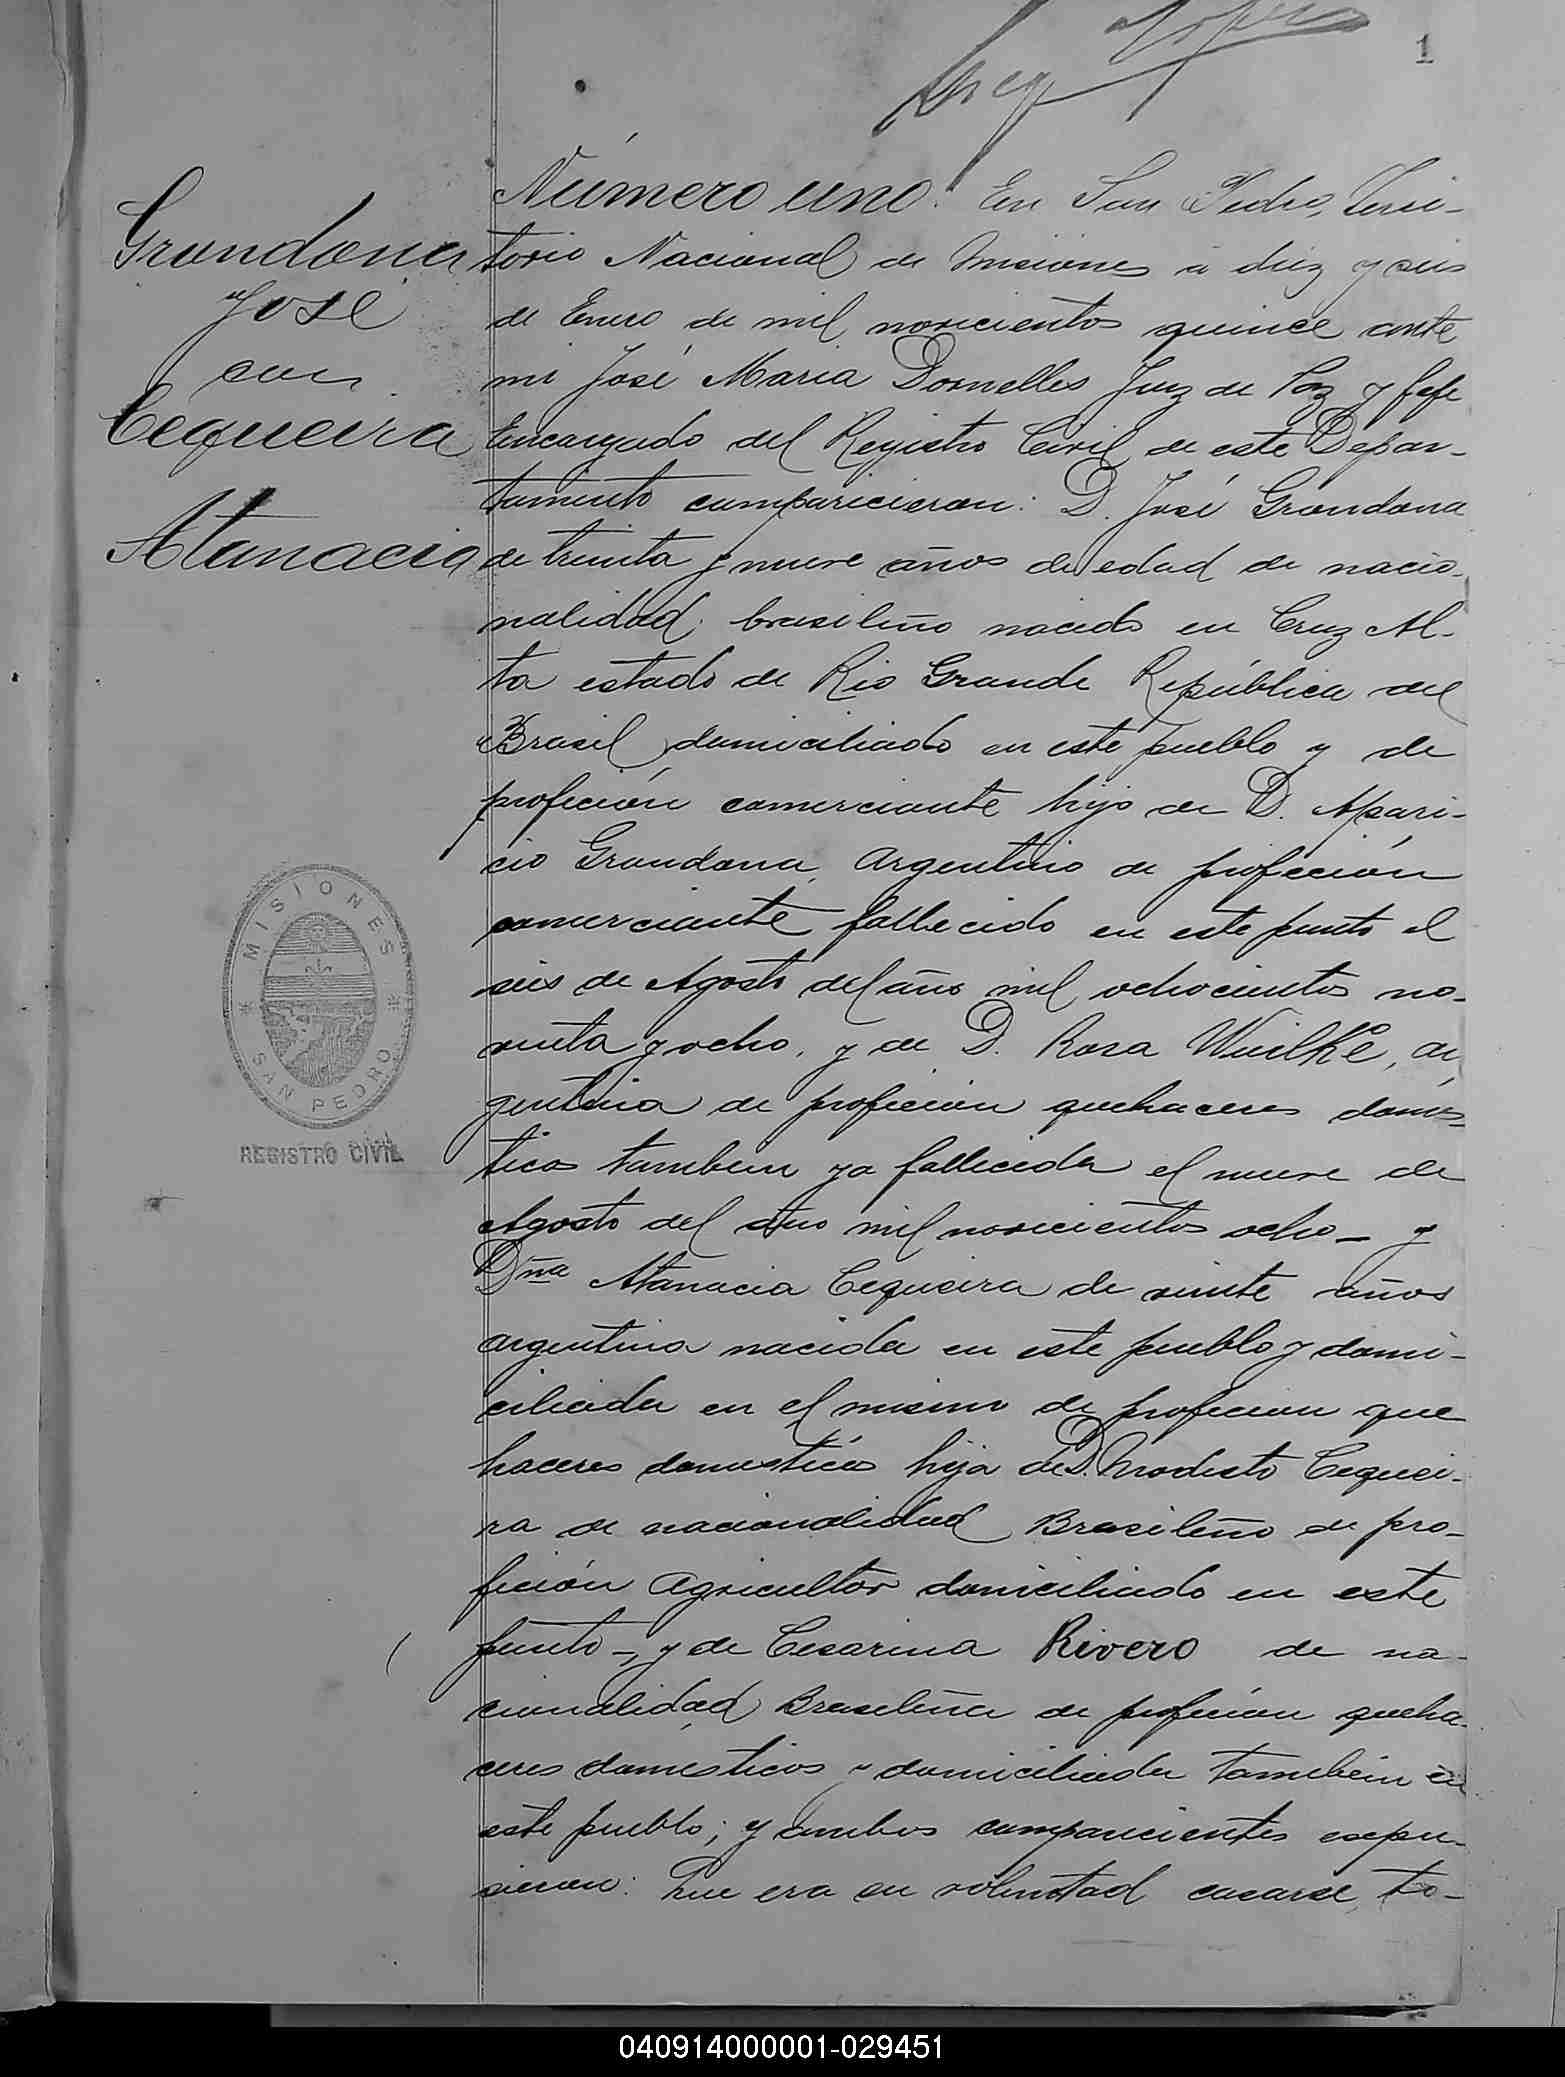 1
Número uno. En San Pedro, Terri-
Grondona
José
con
Cequeira
Atanacia
torio Nacional de Misiones a diez y seis
de Enero de mil novecientos quince ante
mi José Maria Dornelles Juez de Paz y Jefe
Encargado del Registro Civil de este Depar-
tamento comparicieron: D. José Grondona
de treinta y nueve años de edad de nacio-
nalidad brasileño nacido en Cruz Al-
ta estado de Rio Grande República del
Brasil domiciliado en este pueblo y de
profeción comerciante hijo de D. Apari-
cio Grondona, Argentino de profeción
comerciante fallecido en este punto el
seis de Agosto del año mil ochocientos no-
venta y ocho, y de D. Rosa Wuilke, ar
gentina de profecion quehaceres domés-
ticos tambien ya fallecida el nueve de
Agosto del año mil novecientos ocho_ y
Dña Atanacia Cequeira de veinte años
argentina nacida en este pueblo y domi-
ciliada en el mismo de profecion que
haceres domesticos hija de D. Modesto Cequei-
ra de nacionalidad Brasileño de pro-
feción Agricultor domiciliado en este
punto_, y de Cesarina Rivero de na-
cionalidad Brasileña de profeción queha-
ceres domesticos y domiciliada tambien en
este pueblo; y ambos comparecientes expu-
sieron: Que era su voluntad casarse, to-
MISIONES
SAN PEDRO
REGISTRO CIVIL
040914000001-029451